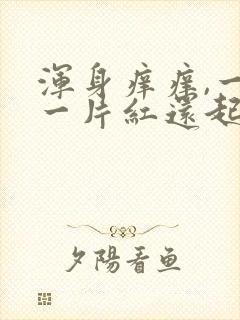 渾身痒痒,一
一片紅還起
夕陽看魚